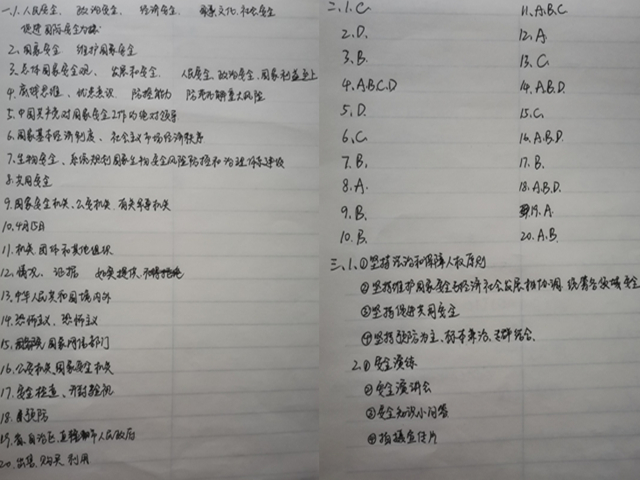 一.1.人民安全、政治安全、经济安全、军事文化、社会安全
促进国际安全为依
2.国家安全 维护国家安全
3.总体国家安全观、发展和安全、人民安全、政治安全、国家利益至上
4.底线思维、忧患意识 防控能力 防范化解重大风险
5.中国共产党对国家安全工作的绝对领导
6.国家基本经济制度、社会主义市场经济秩序
7.生物安全、系统规划国家生物安全风险防控和治理体系建设
8.共同安全
9.国家安全机关、公安机关、有关军事机关
10.4月15日
11.机关、团体和其他组织
12.情况、证据 如实提供
13.中华人民共和国境内外
14.恐怖主义、恐怖主义
15.国家网信部门
16.公安机关国家安全机关
17.安全检查、开封验视
18.预防
19.省、自治区、直辖市人民政府
20.出售、购买、利用
二.1.C.
2.D.
3.B.
4.A.B.C.D
5.D.
6.C.
7.B.
8.A.
9.B.
10.B
11.A.B.C
12.A.
13.C.
14.A.B.D.
15.C.
16.A.B.D.
17.B.
18.A.B.D.
19.A
20.A.B
三.1.①坚持法治和保障人权原则
②坚持维护国家安全与经济社会发展相协调,统筹各领域安全
③坚持促进共同安全
④坚持预防为主、标本兼治、专群结合.
2.①安全演练
②安全演讲会
③安全知识小问答
④拍摄宣传片